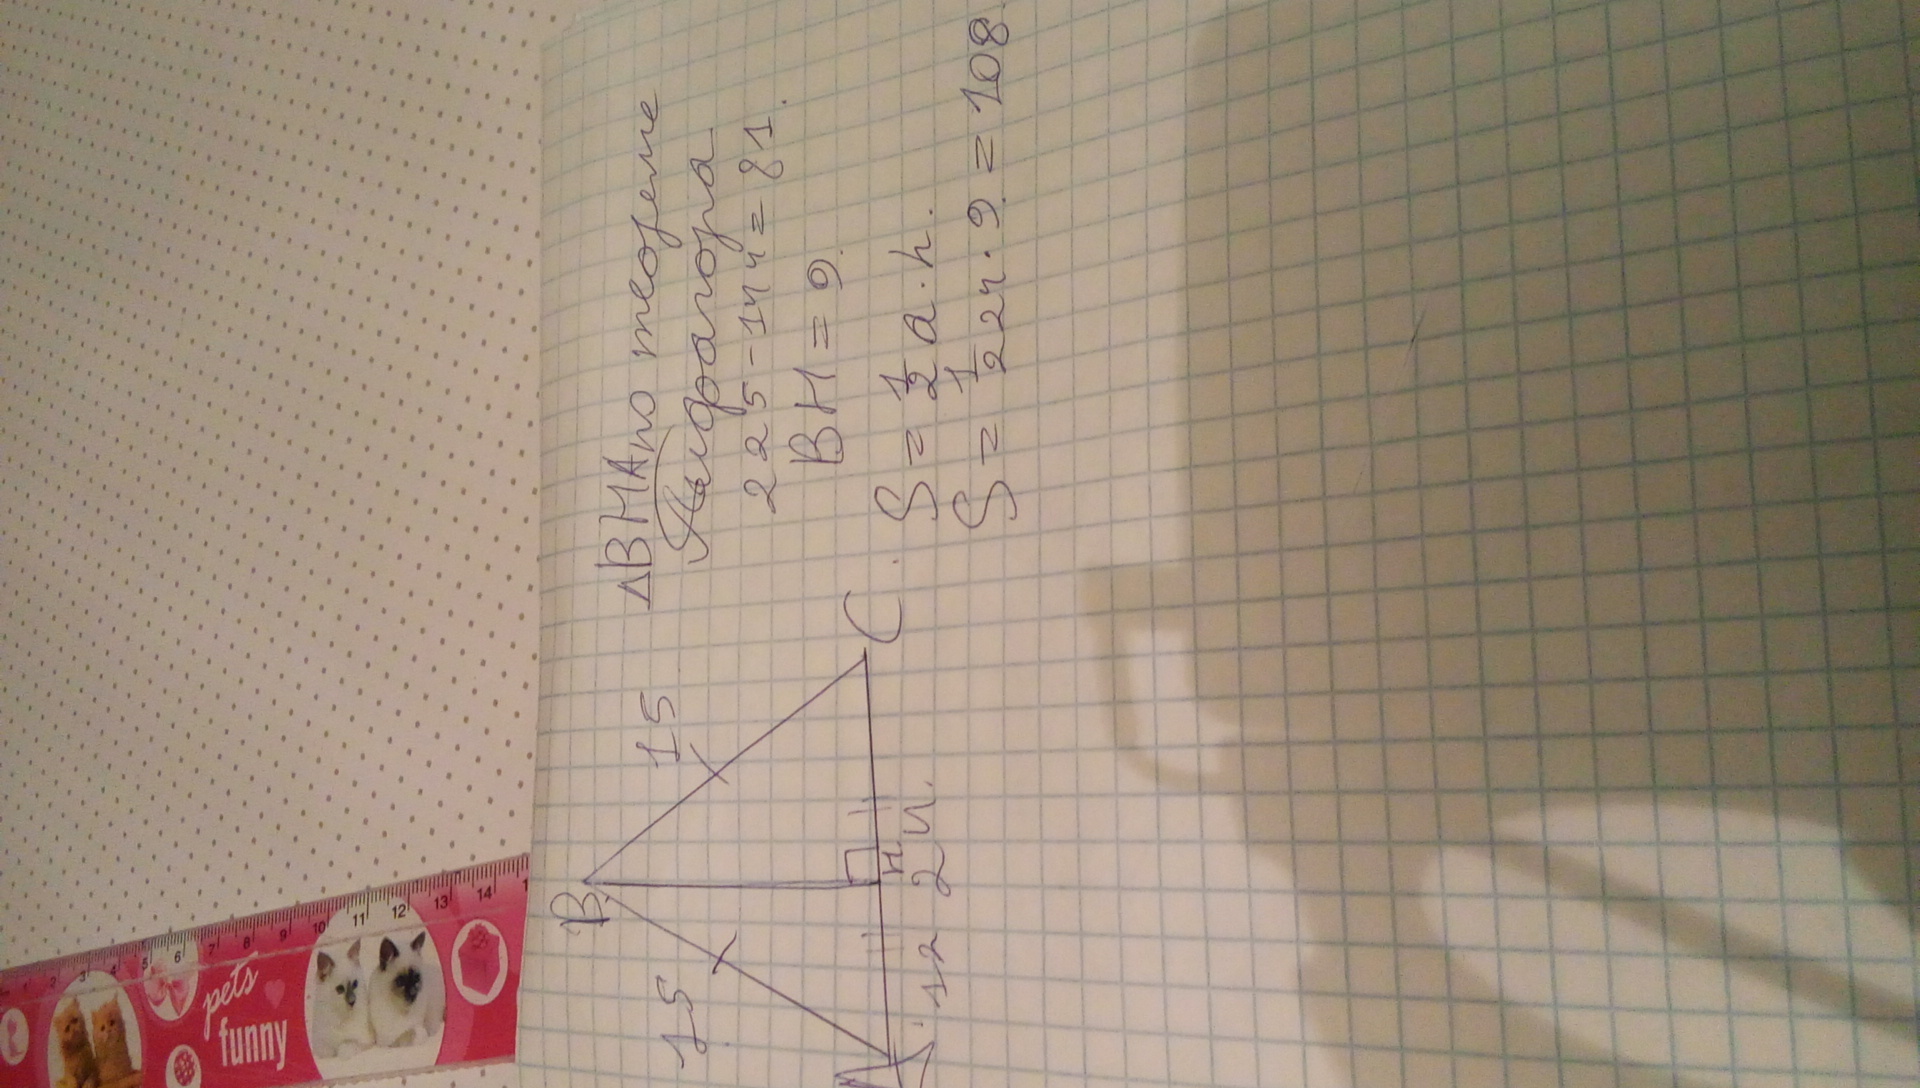 B
15
15
A
H
C
12
24
ΔBHA по теореме
Пифагора
225-144=81.
BH=9.
S=1/2 a·h.
S=1/2 24·9=108.
pets
funny
1 2 3 4 5 6 7 8 9 10 11 12 13 14